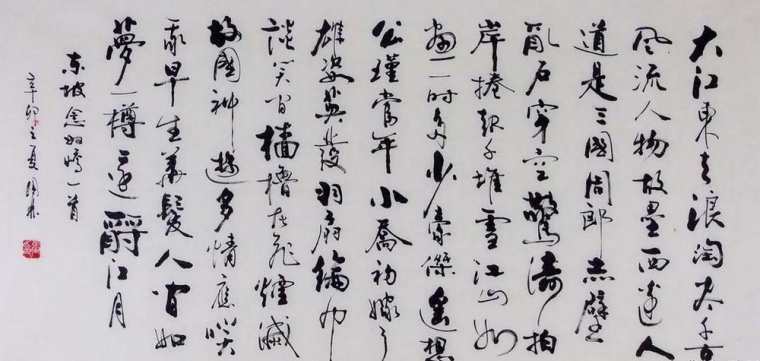 大江東去浪淘尽千
風流人物故壘西邊人
道是三國周郎赤壁
亂石穿空驚濤拍
岸捲起千堆雪江山如
畫一時多少豪傑遙想
公瑾當年小喬初嫁了
雄姿英發羽扇綸巾
談笑間檣櫓灰飛煙滅
故國神遊多情應笑
我早生華髮人間如
夢一樽還酹江月
東坡念奴嬌一首
辛卯之夏